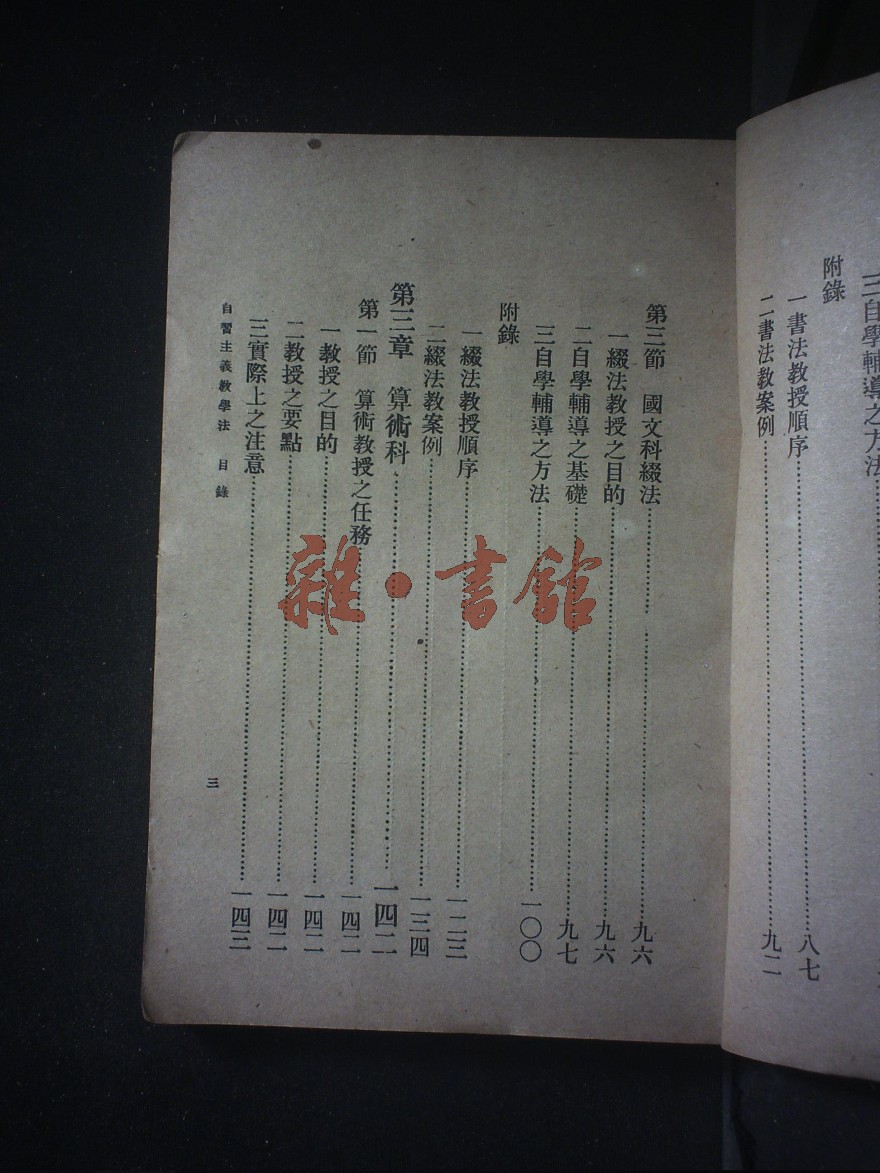 三自學輔導之方法
附錄
一書法教授順序……八七
二書法教案例……九二
第三節　國文科綴法……九六
一綴法教授之目的……九六
二自學輔導之基礎……九七
三自學輔導之方法……一〇〇
附錄
一綴法教授順序……一二三
二綴法教案例……一三四
第三章　算術科……一四二
第一節　算術教授之任務……一四二
一教授之目的……一四二
二教授之要點……一四二
三實際上之注意……一四三
自習主義教學法　目錄
三
雜·書館